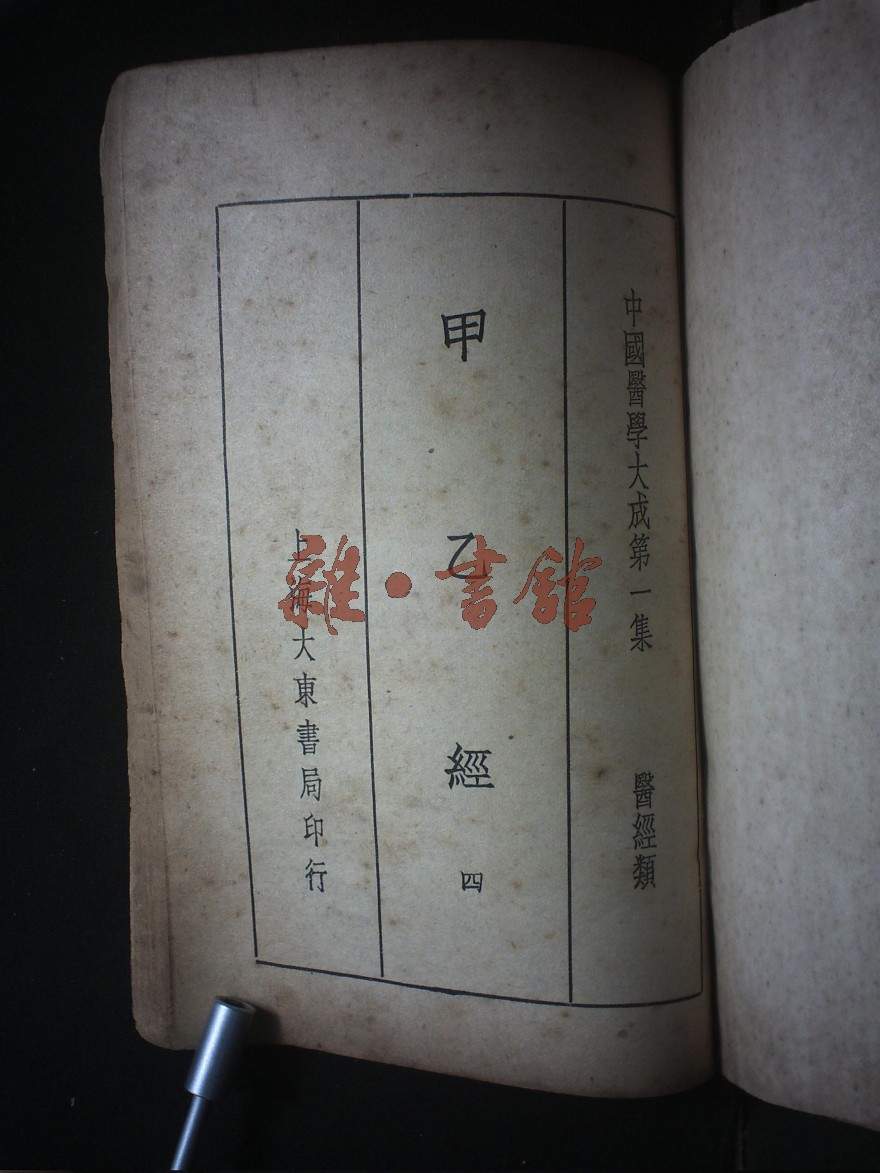 中國醫學大成第一集 醫經類
甲乙經 四
上海大東書局印行
雜·書館